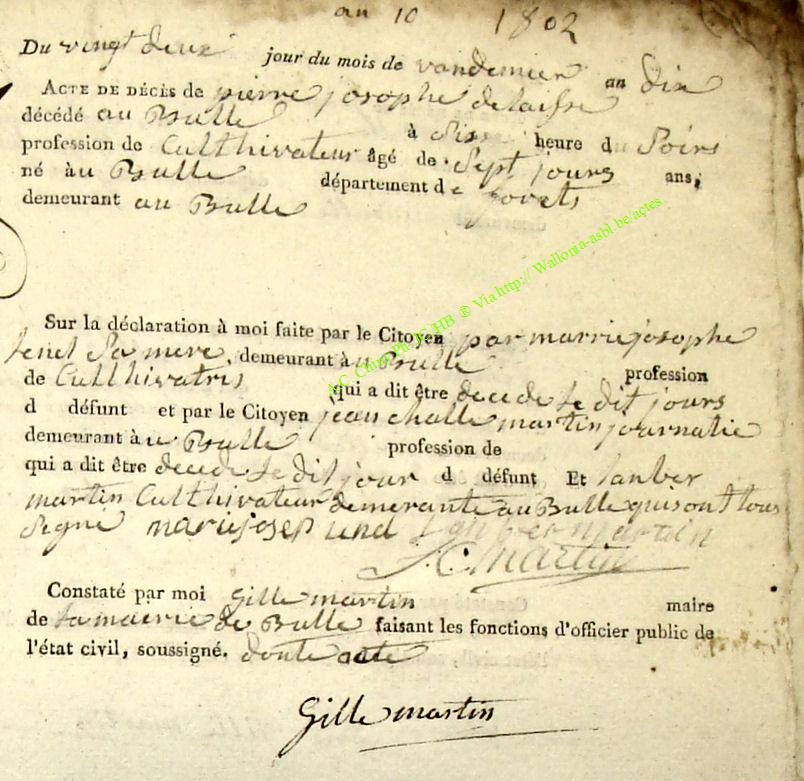 an 10 1802
Du vingt deux jour du mois de vandemier an dix
ACTE DE DÉCÈS de pierre josophe delaisse
décédé au Bulle à Sise heure du Soirs
profession de Cullhivateur âgé de Sept jours ans,
né àu Bulle département de forets
demeurant au Bulle
Sur la déclaration à moi faite par le Citoyen par marriejosophe
Sa mere, demeurant àu Bulle profession
de Cullhivatris qui a dit être decede le dit jours
d défunt et par le Citoyen jean challe martin journalie
demeurant àu Bulle profession de
qui a dit être decede le dit jour d défunt, Et lanber
martin Cullhivateur demerante au Bulle qui sont tous
Signé mariejosep lanbermartin
J.C. martin
Constaté par moi gille martin maire
de la mairie de Bulle faisant les fonctions d'officier public de
l'état civil, soussigné. donte acte
Gille martin
Via http:// Wallonia-asbl.be/actes